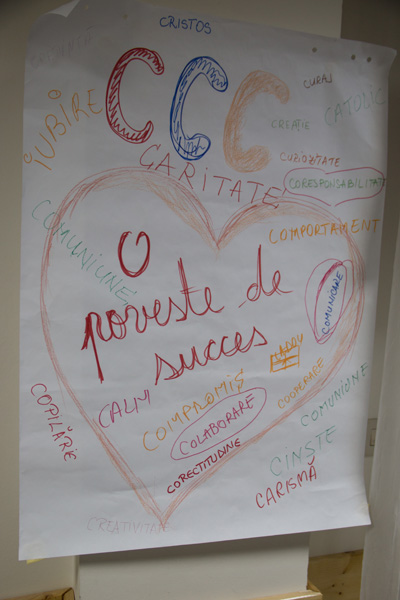 CRISTOS
CCC
CURAJ
CATOLIC
CREAȚIE
IUBIRE
CURIOZITATE
CARITATE
CORESPONSABILITATE
COMUNIUNE
COMPORTAMENT
O
poveste de
succes
COMUNICARE
CADOU
CALM
COMPROMIS
COOPERARE
COPILĂRIE
COLABORARE
COMUNIUNE
CORECTITUDINE
CINSTE
CARISMĂ
CREATIVITATE